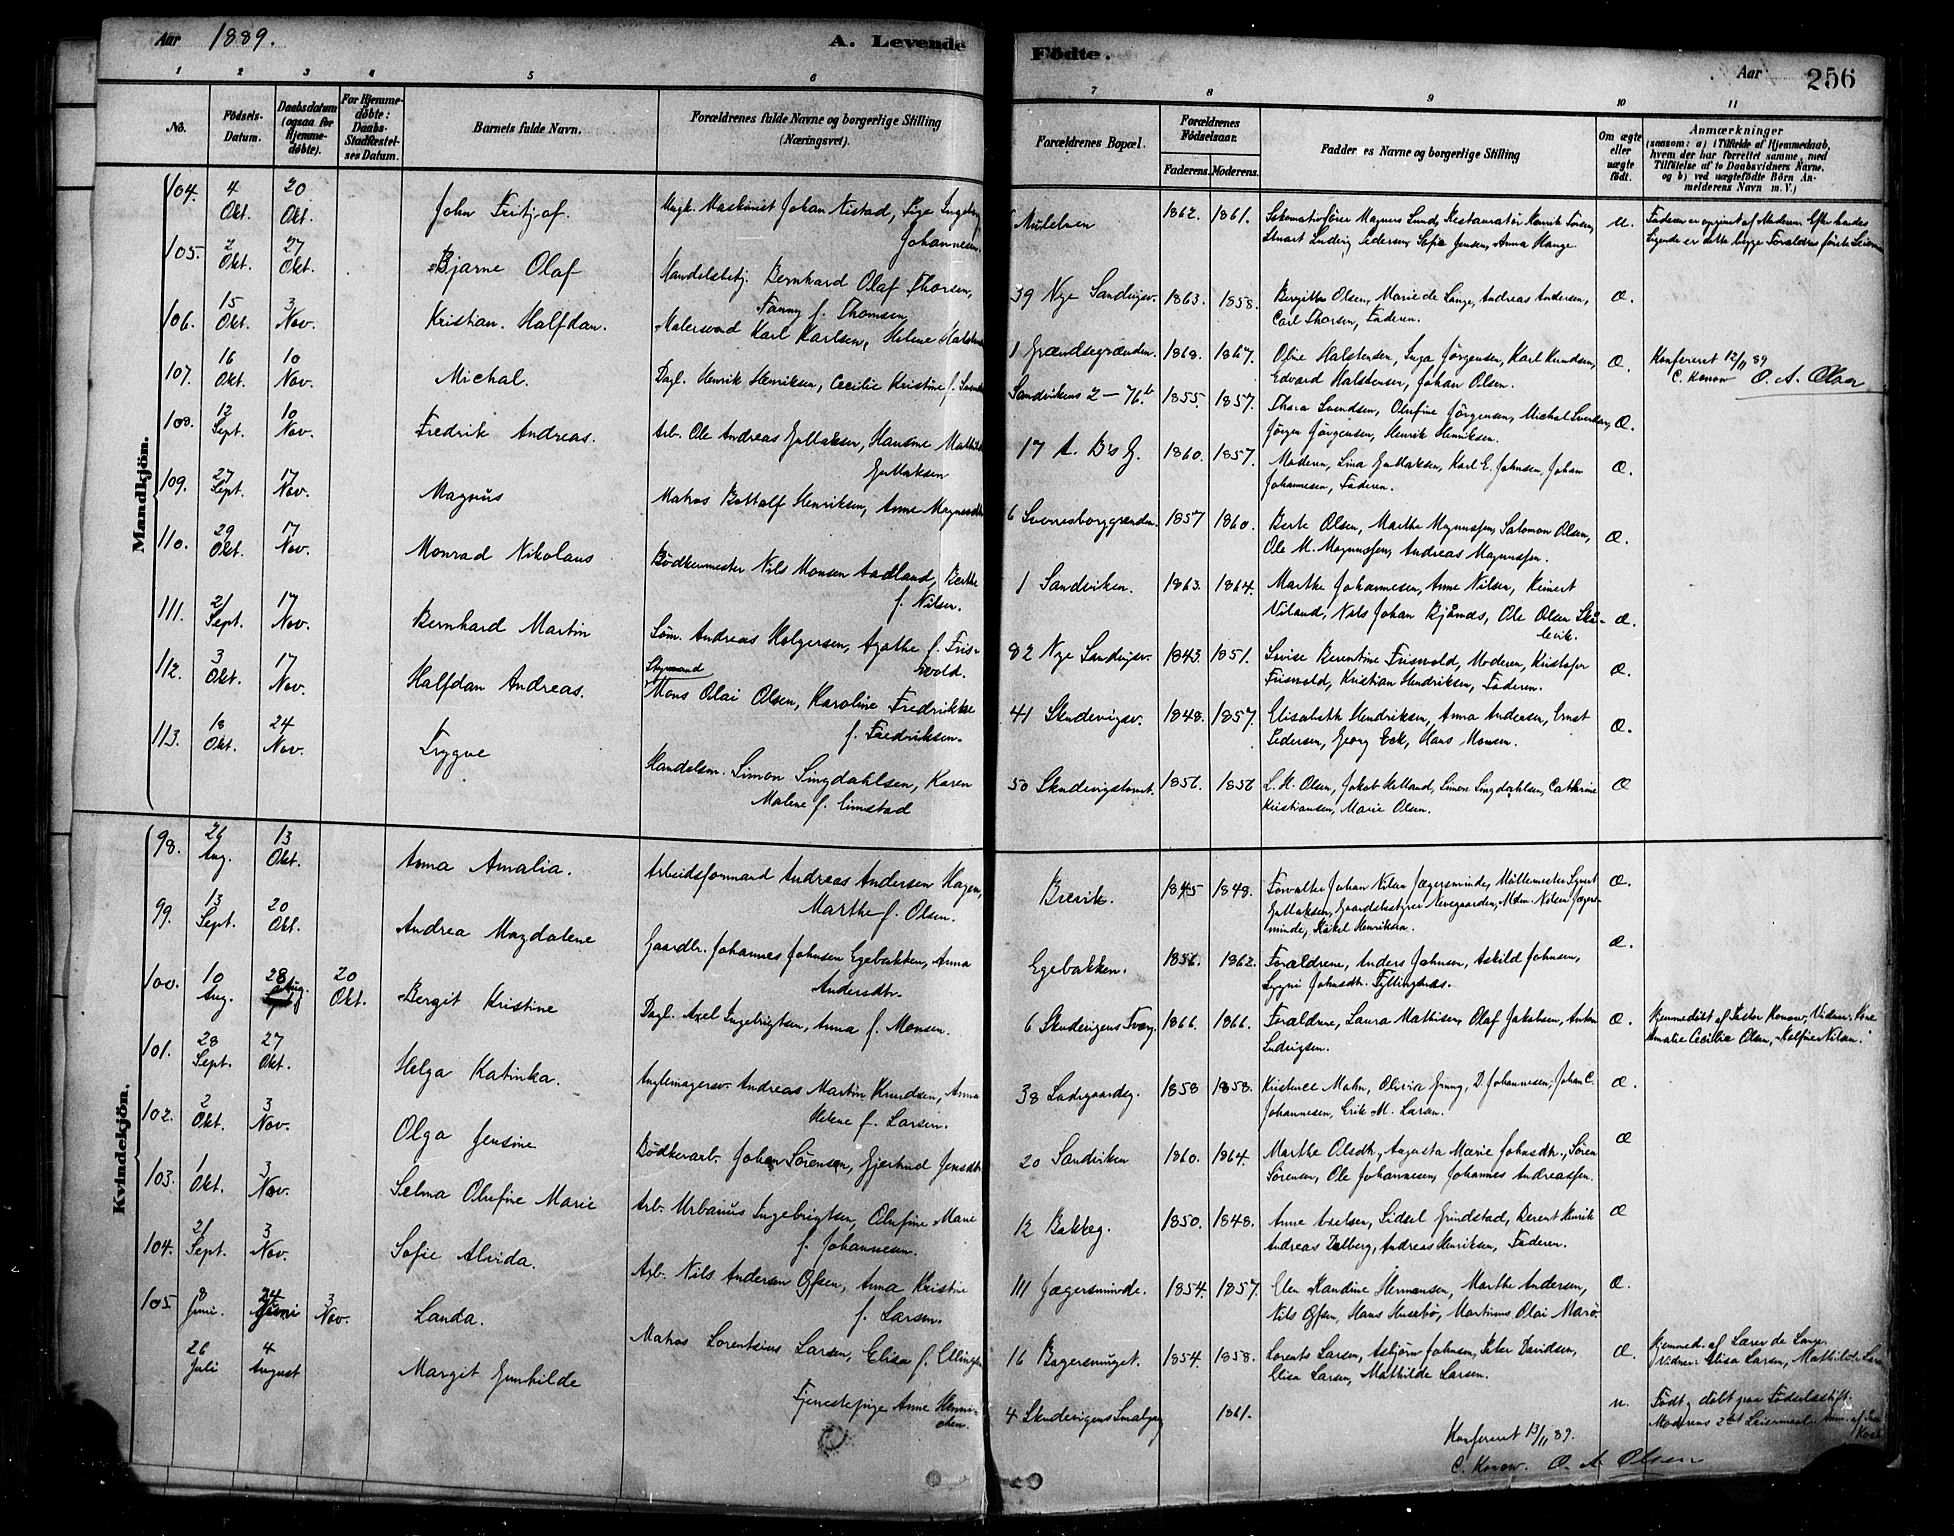 Aar 1889. A. Levende Födte. Aar 256
1 2 3 4 5 6 7 8 9 10 11
No.
Födsels-Datum.
Daabsdatum (ogsaa for Hjemme-döbte).
For Hjemme-döbte: Daabs-Stadfæstel-ses Datum.
Barnets fulde Navn.
Forældrenes fulde Navne og borgerlige Stilling (Næringsvei).
Forældrenes Bopæl.
Forældrenes Födselsaar.
Faderens. Moderens.
Faddernes Navne og borgerlige Stilling
Om ægte eller uægte födt.
Anmærkninger
(saasom: a) i Tilfælde af Hjemmedaab,
hvem der har forrettet samme, med
Tilföielse af to Daabsvidners Navne,
og b) ved uægtefödte Börn An-
melderens Navn m. V.)
Mandkjön.
104. 4 Okt. 20 Okt. John Fritjof. Ungk. Maskinist Johan Nistad, Pige Ingeborg Johannesen. Mulelven 1862. 1861. Lokomotivfører Magnus Lund, Restauratør Henrik Sørensen,
Stuart Ludvig Pedersen, Sofie Jensen, Anna Hauge u. Faderen er opgivet af Moderen. Efter hendes
Sigende er dette begge Forældres første Leiermaal
105. 2 Okt. 27 Okt. Bjarne Olaf Handelsbetj. Bernhard Olaf Thorsen,
Fanny f. Thomsen 39 Nye Sandvigsv. 1863. 1858. Bergitte Olsen, Marie de Lange, Andreas Andersen,
Carl Thorsen, Faderen. Æ.
106. 15 Okt. 3 Nov. Kristian Halfdan. Malersvend Karl Karlsen, Helene Halstensen 1 Grændsegrænden. 1868. 1867. Oline Halstensen, Inga Jørgensen, Karl Knudsen,
Edvard Halstensen, Johan Olsen. Æ. Konfereret 12/11 89
C. Konow O. A. Olsen
107. 16 Okt. 10 Nov. Michal. Dagl. Henrik Henriksen, Cecilie Kristine f. Svendsen Sandvikens 2 - 76b 1855. 1857. Thora Svendsen, Olufine Jørgensen, Michal Svendsen,
Jørgen Jørgensen, Henrik Henriksen. Æ.
108. 12 Sept. 10 Nov. Fredrik Andreas. Arb. Ole Andreas Gullaksen, Hansine Mathilde
Gullaksen 17 A. B's G. 1860. 1857. Moderen, Lina Gullaksen, Karl E. Johnsen, Johan
Johannesen, Faderen. Æ.
109. 27 Sept. 17 Nov. Magnus Matros Bottolf Henriksen, Anne Magnusdtr 6 Sverresborggrænden. 1857 1860. Berte Olsen, Marthe Magnussen, Salomon Olsen,
Ole M. Magnussen, Andreas Magnussen. Æ.
110. 29 Okt. 17 Nov. Monrad Nikolaus Bødkermester Nils Monsen Aadland, Berthe
f. Nilsen. 1 Sandviken. 1863. 1864. Marthe Johannesen, Anne Nilsen, Reinert
Viland, Nils Johan Bjånæs, Ole Olsen Skå-
levik. Æ.
111. 21 Sept. 17 Nov. Bernhard Martin Søm. Andreas Holgersen, Agathe f. Fris-
vold. 82 Nye Sandvigsv. 1843. 1851. Lovise Berentine Frisvold, Moderen, Kristofer
Frisvold, Kristian Hendriksen, Faderen. Æ.
112. 3 Okt. 17 Nov. Halfdan Andreas. Styrmand
Mons Olai Olsen, Karoline Fredrikke
f. Fredriksen. 41 Skudevigsv. 1848. 1857. Elisabeth Hendriksen, Anna Andersen, Ernst
Pedersen, Georg Eek, Hans Monsen. Æ.
113. 18 Okt. 24 Nov. Trygve Handelsm. Simon Singdahlsen, Karen
Malene f. Eimstad 50 Skudevigstomt. 1856. 1856 L. H. Olsen, Jakob Helland, Simon Singdahlsen, Cathrine
Kristiansen, Marie Olsen. Æ
Kvindekjön.
98. 26 Aug. 13 Okt. Anna Amalia. Arbeidsformand Andreas Andersen Hagen,
Marthe f. Olsen. Brevik. 1845 1848. Forvalter Johan Nilsen Jægersminde, Møllemester Sjurt
Gullaksen, Gaardsbestyrer Nevegaarden, Mdm. Nilsen Jægers-
minde, Rakel Henriksen. Æ.
99. 13 Sept. 20 Okt. Andrea Magdalene Gaardbr. Johannes Johnsen Egebakken, Anna
Andersdtr. Egebakken. 1856. 1862. Forældrene, Anders Johnsen, Askild Johnsen,
Sygni Johnsdtr. Fyllingsnæs. Æ.
100. 10 Aug. 28 Aug. 20 Okt. Bergit Kristine Dagl. Axel Ingebrigtsen, Anna f. Monsen. 6 Skudevigens Tværg. 1866. 1866. Forældrene, Laura Mathisen, Olaf Jakobsen, Anton
Ludvigsen. Æ. Hjemmedøbt af Pastor Konow, Vidner:
Amalie Cecilia Olsen, Kolfine Nilsen.
101. 28 Sept. 27 Okt. Helga Katinka. Anglemagersv. Andreas Martin Knudsen, Anna
Helene f. Larsen. 38 Ladegaardsg. 1858 1858. Kristence Mohn, Olivia Grung, D. Johannesen, Johan C.
Johannesen, Erik M. Larsen. Æ.
102. 2 Okt. 3 Nov. Olga Jensine Bødkerarb. Johan Sørensen, Gjertrud Jensdtr. 20 Sandviken 1860. 1864. Marthe Olsdtr., Augusta Marie Johnsdtr., Søren
Sørensen, Ole Johannesen, Johannes Andreassen. Æ
103. 1 Okt. 3 Nov. Selma Olufine Marie Arb. Urbanus Ingebrigtsen, Olufine Marie
f. Johannesen. 12 Bakkeg. 1850. 1848. Anne Axelsen, Sidsel Grindstad, Berent Henrik
Andreas Dalberg, Andreas Henriksen, Faderen. Æ
104. 21 Sept. 3 Nov. Sofie Alvida. Arb. Nils Andersen Ofsen, Anna Kristine
f. Larsen. 111 Jægersminde. 1854. 1857. Elen Kandine Hermansen, Marthe Andersen,
Nils Ofsen, Hans Husebø, Martinus Olai Marø. Æ.
105. 8 Juni. 24 Juni 3 Nov. Landa. Matros Lorentsius Larsen, Elisa f. Ellingsen 16 Bagersmuget. 1854. 1858. Lorents Larsen, Asbjørn Johnsen, Peter Davidsen,
Elisa Larsen, Mathilde Larsen. Æ. Hjemmed. af Lærer de Lange.
Vidner: Elisa Larsen, Mathilde Larsen
26 Juli 4 August Margit Gunhilde Tjenestepige Anne Henri-
chen. 4 Skudevigens Smalgang 1861. u. Født og døbt paa Fødselsstift.
Moderens 2det Leiermaal. Anm. af
Konfereret 13/11 89.
C. Konow. O. A. Olsen